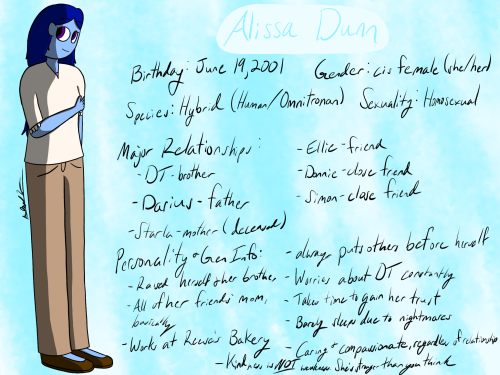 Alissa Dunn
Birthday: June 19, 2001
Gender: cis female (she/her)
Species: Hybrid (Human/Omnitronan)
Sexuality: Homosexual
Major Relationships:
- DT - brother
- Darius - father
- Starla - mother (deceased)
- Ellie - friend
- Donnie - close friend
- Simon - close friend
Personality & Gen Info:
- Raised herself & her brother
- All of her friends' mom, basically
- Works at Reese's Bakery
- Kindness is NOT weakness. She's stronger than you think
- always puts others before herself
- Worries about DT constantly
- Takes time to gain her trust
- Barely sleeps due to nightmares
- Caring & compassionate, regardless of relationship